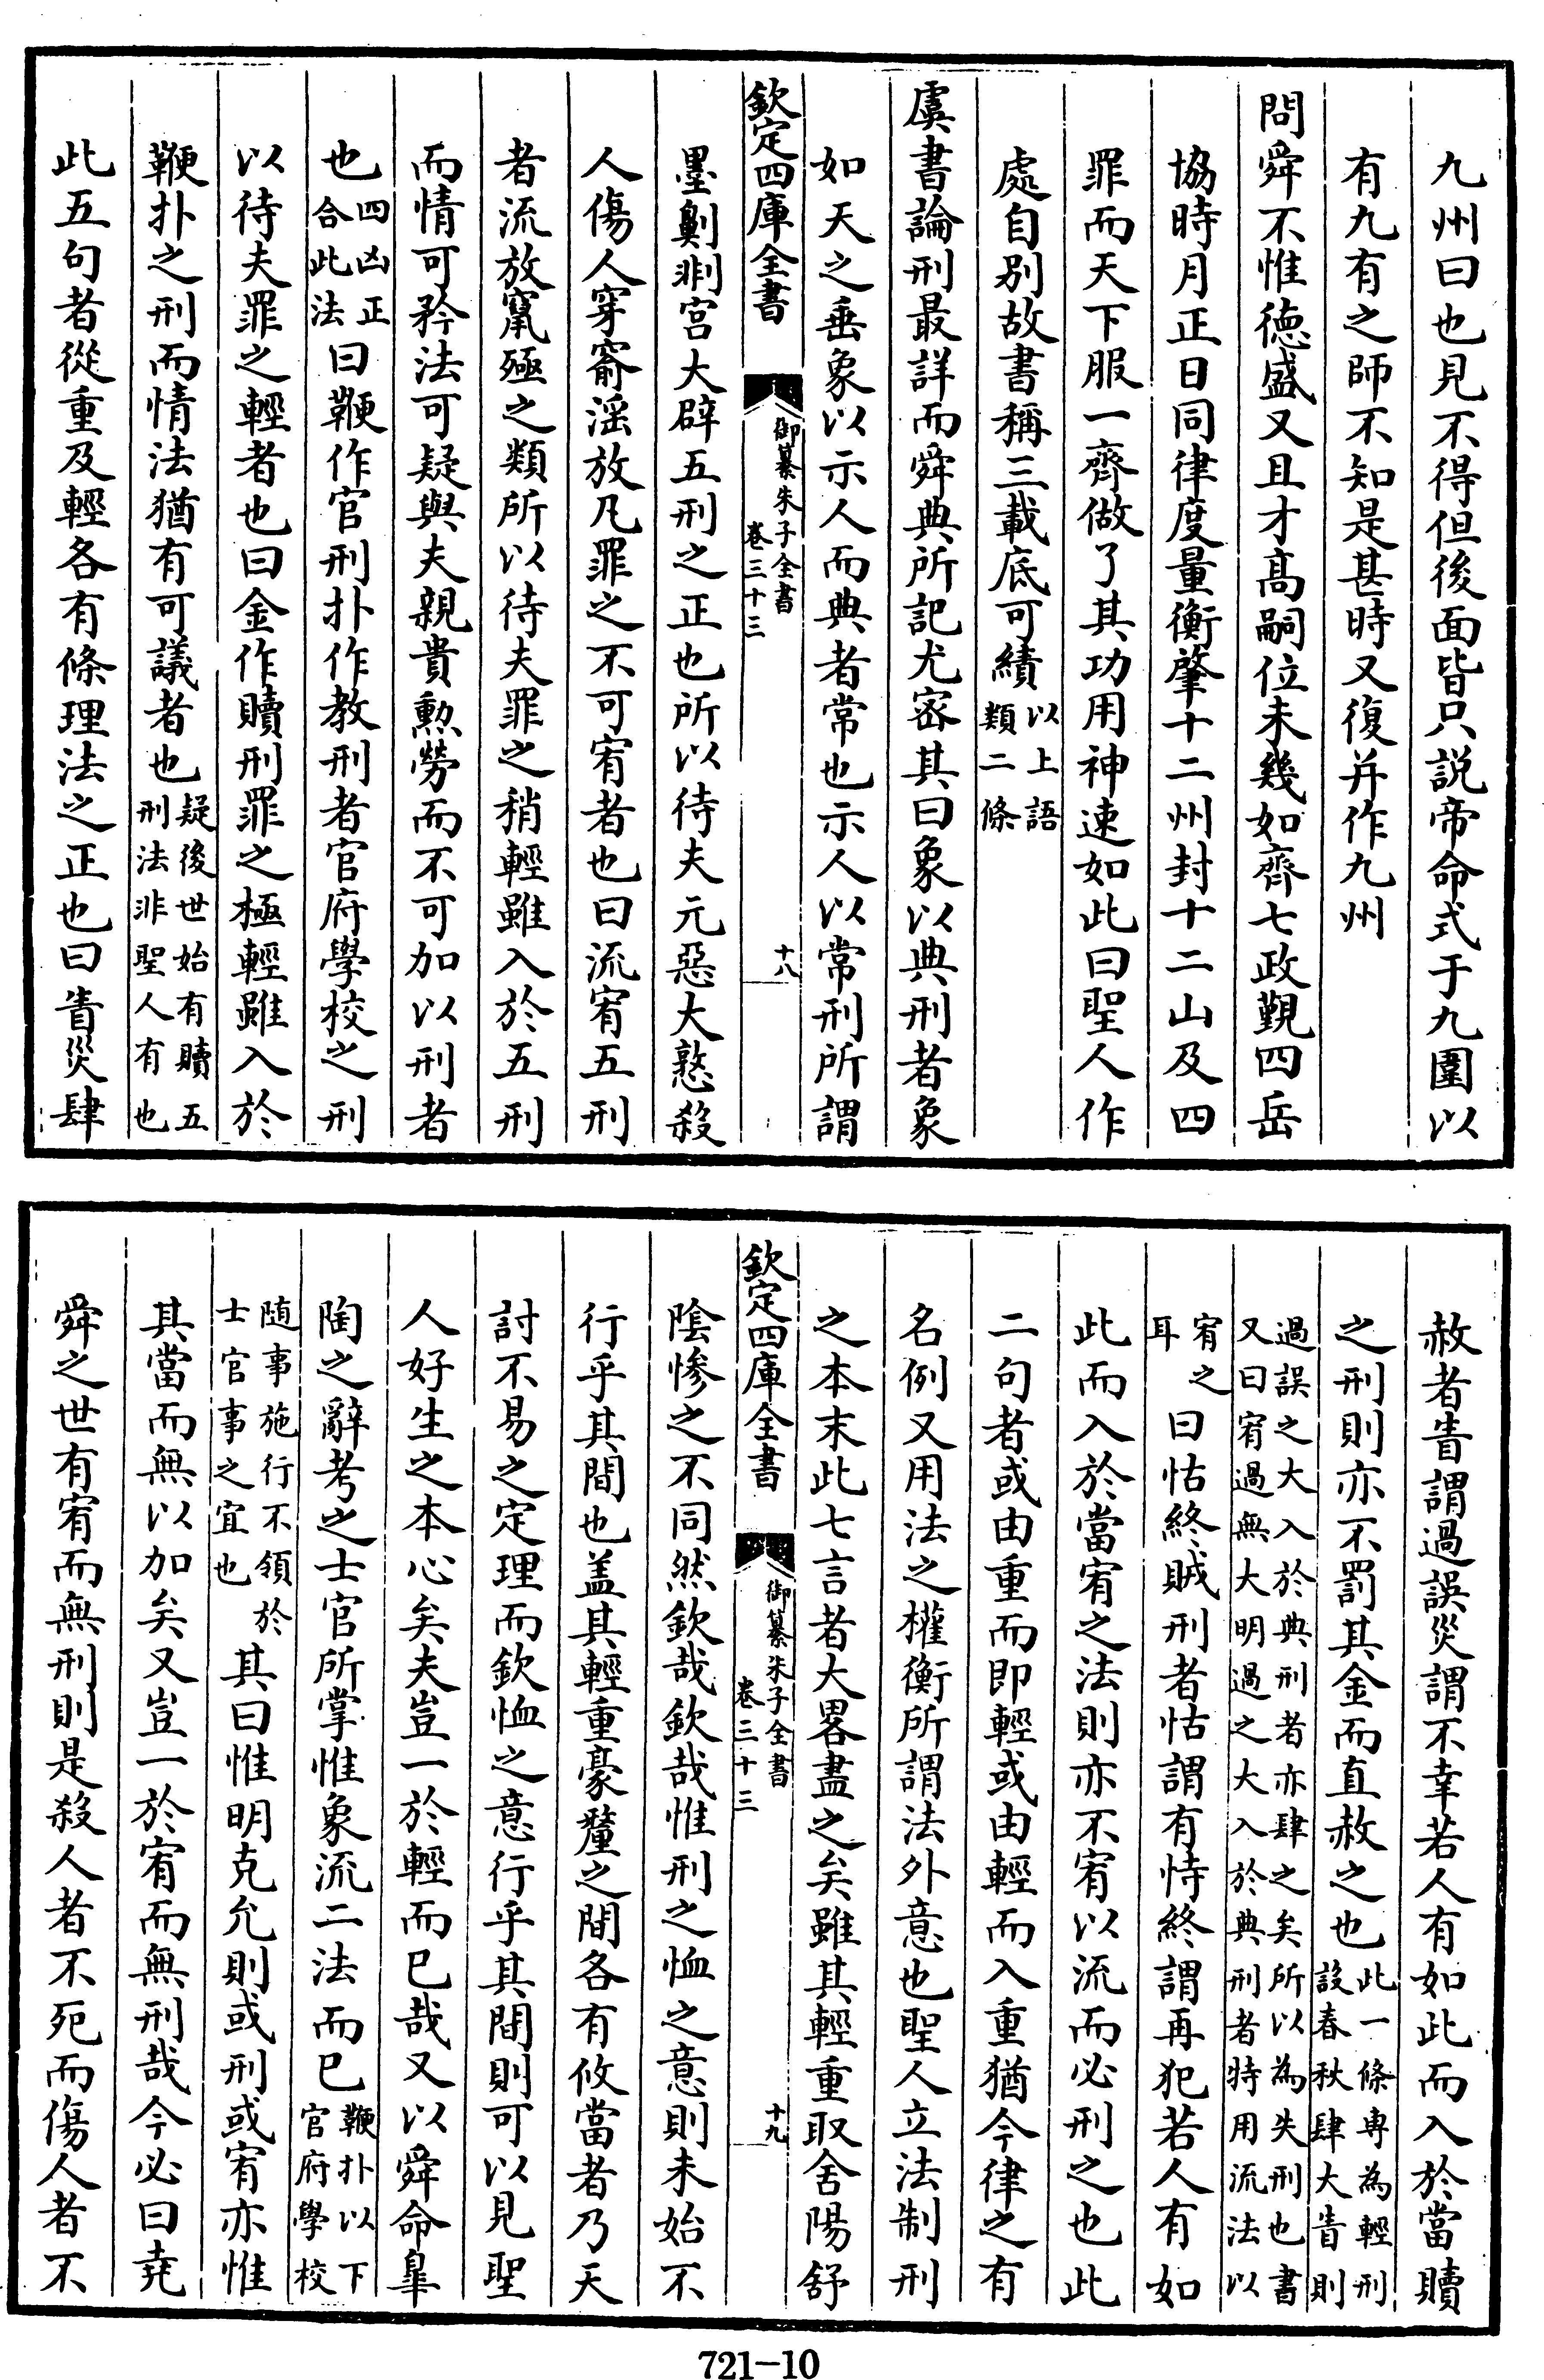 九州曰也見不得但後面皆只説帝命式于九圍以
有九有之師不知是甚時又復并作九州
問舜不惟徳盛又且才髙嗣位未幾如齊七政覲四岳
協時月正日同律度量衡肇十二州封十二山及四
罪而天下服一齊做了其功用神速如此曰聖人作
處自别故書稱三載底可績以上語
類二條
虞書論刑最詳而舜典所記尤宻其曰象以典刑者象
如天之垂象以示人而典者常也示人以常刑所謂
欽定四庫全書
御纂朱子全書
卷三十三
十八
墨劓剕宫大辟五刑之正也所以待夫元惡大憝殺
人傷人穿窬滛放凡罪之不可宥者也曰流宥五刑
者流放竄殛之類所以待夫罪之稍輕雖入於五刑
而情可矜法可疑與夫親貴勲勞而不可加以刑者
也四凶正
合此法曰鞭作官刑扑作教刑者官府學校之刑
以待夫罪之輕者也曰金作贖刑罪之極輕雖入於
鞭扑之刑而情法猶有可議者也疑後世始有贖五
刑法非聖人有也
此五句者從重及輕各有條理法之正也曰眚災肆
赦者眚謂過誤災謂不幸若人有如此而入於當贖
之刑則亦不罰其金而直赦之也此一條專為輕刑
設春秋肆大眚則
過誤之大入於典刑者亦肆之矣所以為失刑也書
又曰宥過無大明過之大入於典刑者特用流法以
宥之
耳曰怙終賊刑者怙謂有恃終謂再犯若人有如
此而入於當宥之法則亦不宥以流而必刑之也此
二句者或由重而即輕或由輕而入重猶今律之有
名例又用法之權衡所謂法外意也聖人立法制刑
之本末此七言者大畧盡之矣雖其輕重取舍陽舒
欽定四庫全書
御纂朱子全書
卷三十三
十九
陰慘之不同然欽哉欽哉惟刑之恤之意則未始不
行乎其間也盖其輕重豪釐之間各有攸當者乃天
討不易之定理而欽恤之意行乎其間則可以見聖
人好生之本心矣夫豈一於輕而已哉又以舜命臯
陶之辭考之士官所掌惟象流二法而已鞭扑以下
官府學校
随事施行不領於
士官事之宜也其曰惟明克允則或刑或宥亦惟
其當而無以加矣又豈一於宥而無刑哉今必曰堯
舜之世有宥而無刑則是殺人者不死而傷人者不
721-10